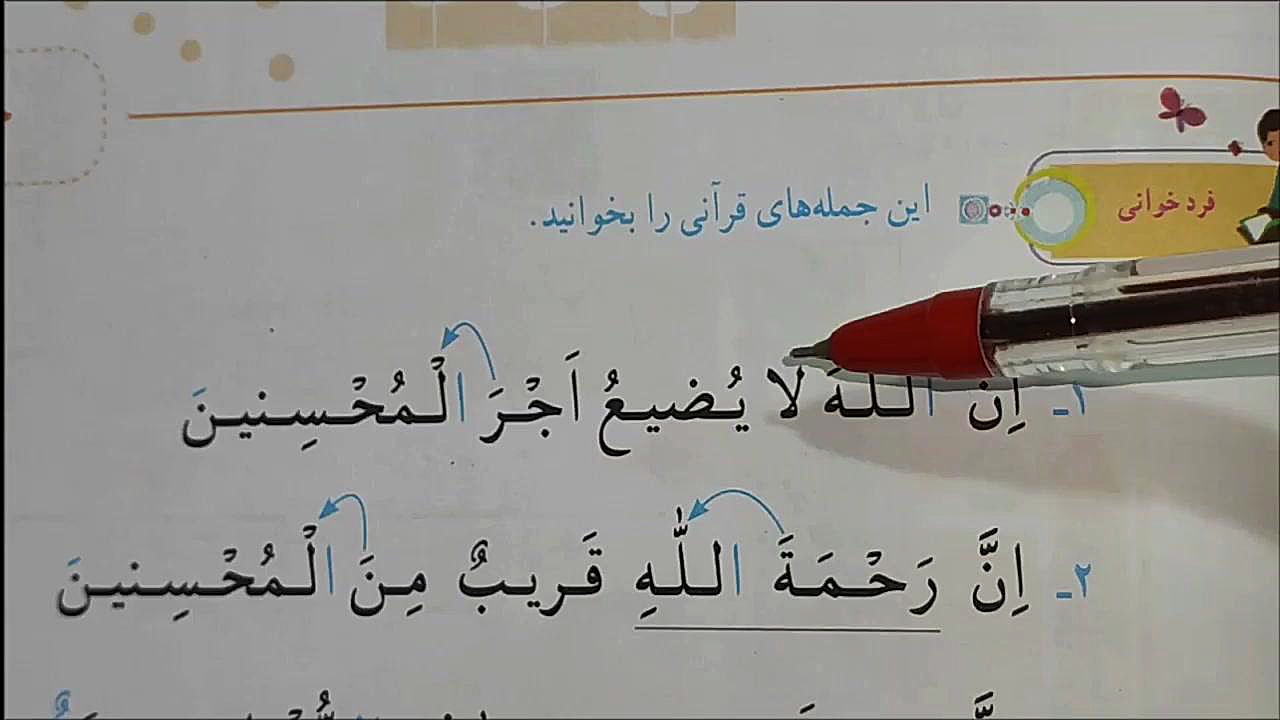 فرد خوانی
این جمله‌های قرآنی را بخوانید.
۱ـ اِنَّ اللهَ لا یُضیعُ اَجْرَ الْمُحْسِنینَ
۲ـ اِنَّ رَحْمَةَ اللّٰهِ قَریبٌ مِنَ الْمُحْسِنینَ